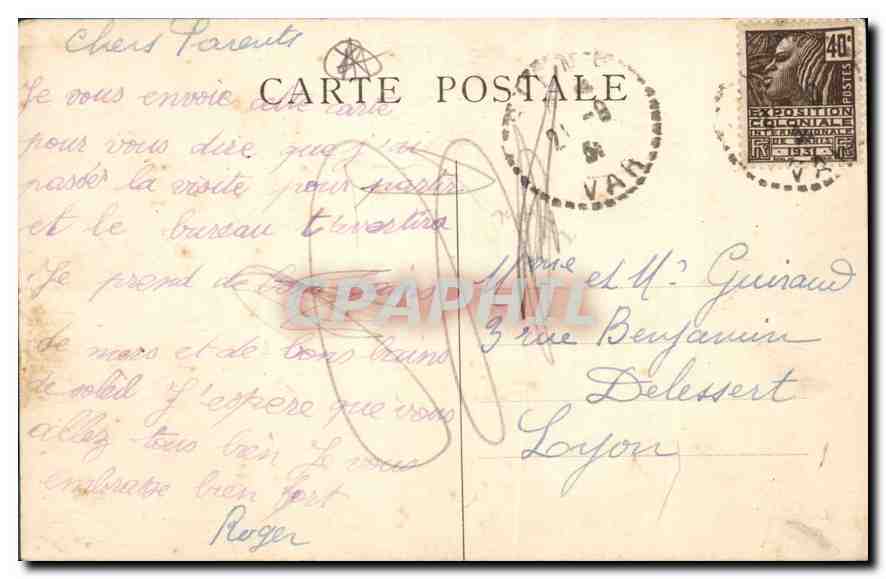 Chers Parents
CARTE POSTALE
Je vous envoie cette carte
pour vous dire que j'ai
passer la visite pour partir
et le bureau t'avertira
Je prend de bons bains
de mers et de bons bains
de soleil J'espère que vous
allez tous bien Je vous
embrasse bien fort
Roger
VAR
40c
POSTES
EXPOSITION
COLONIALE
INTERNATIONALE
DE PARIS
1931
VAR
Mme et Mr Guiraud
3 rue Benjamin
Delessert
Lyon
CPAPHIL